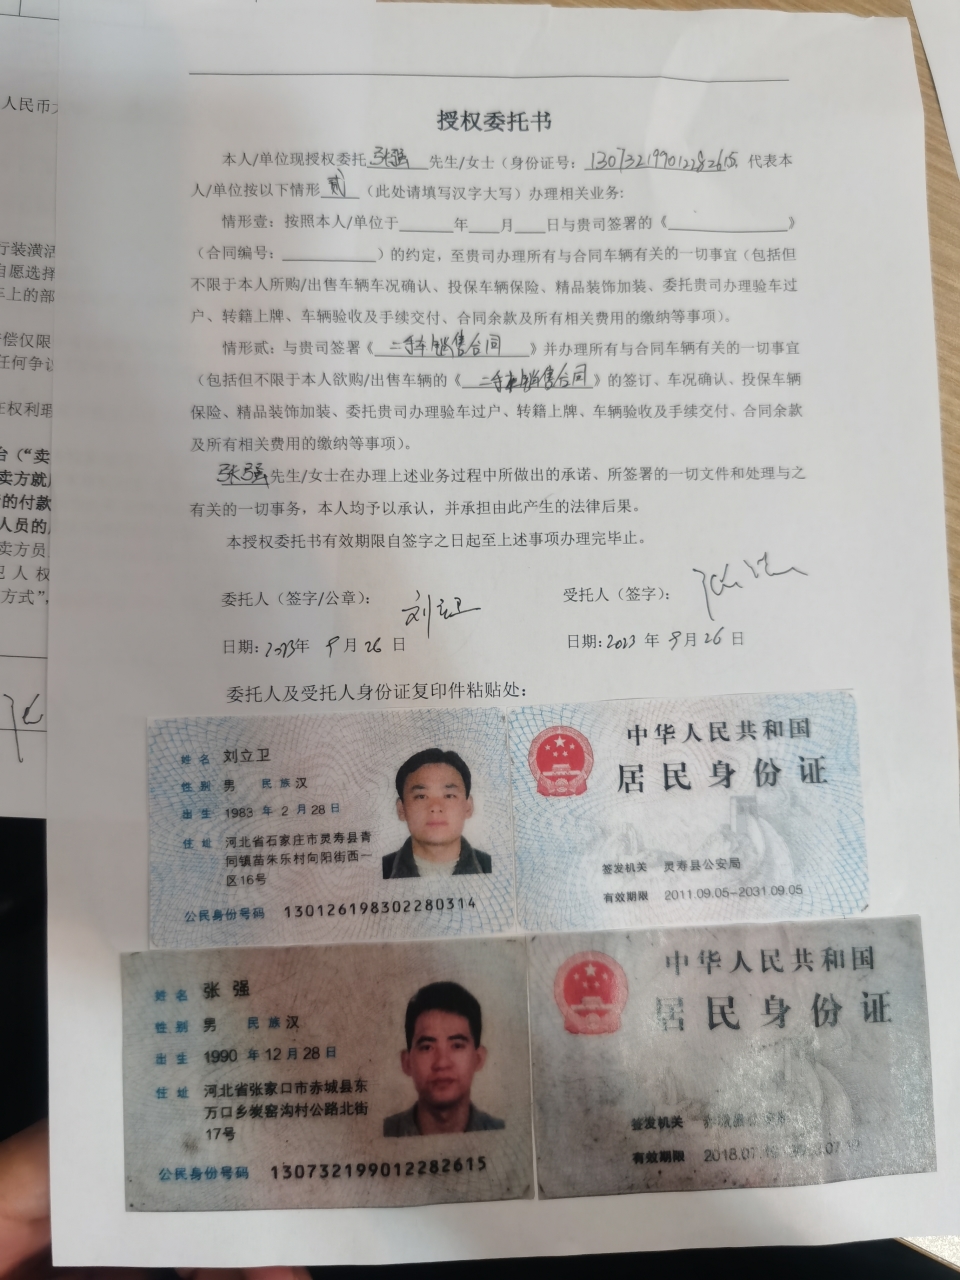 授权委托书
本人/单位现授权委托张强先生/女士（身份证号：130732199012282615 代表本
人/单位按以下情形 贰 （此处请填写汉字大写）办理相关业务:
情形壹：按照本人/单位于 年 月 日与贵司签署的《 》
（合同编号： ）的约定，至贵司办理所有与合同车辆有关的一切事宜（包括但
不限于本人所购/出售车辆车况确认、投保车辆保险、精品装饰加装、委托贵司办理验车过
户、转籍上牌、车辆验收及手续交付、合同余款及所有相关费用的缴纳等事项）。
情形贰：与贵司签署《二手车销售合同》并办理所有与合同车辆有关的一切事宜
（包括但不限于本人欲购/出售车辆的《二手车销售合同》的签订、车况确认、投保车辆
保险、精品装饰加装、委托贵司办理验车过户、转籍上牌、车辆验收及手续交付、合同余款
及所有相关费用的缴纳等事项）。
张强先生/女士在办理上述业务过程中所做出的承诺、所签署的一切文件和处理与之
有关的一切事务，本人均予以承认，并承担由此产生的法律后果。
本授权委托书有效期限自签字之日起至上述事项办理完毕止。
委托人（签字/公章）：刘立卫
受托人（签字）：
日期:2023年 9月26日
日期:2023年9月26日
委托人及受托人身份证复印件粘贴处：
姓名 刘立卫
性别 男 民族 汉
出生 1983 年 2 月 28 日
住址 河北省石家庄市灵寿县青
同镇苗朱乐村向阳街西一
区16号
公民身份号码 130126198302280314
中华人民共和国
居民身份证
签发机关 灵寿县公安局
有效期限 2011.09.05-2031.09.05
姓名 张强
性别 男 民族 汉
出生 1990 年 12 月 28 日
住址 河北省张家口市赤城县东
万口乡炭窑沟村公路北街
17号
公民身份号码 130732199012282615
中华人民共和国
居民身份证
签发机关
有效期限 2018.07.
人民币
行装潢
自愿选择
车上的部
偿仅限
任何争议
在权利理
台（“卖
卖方就
的付款
人员的
卖方员
犯人权
方式”，